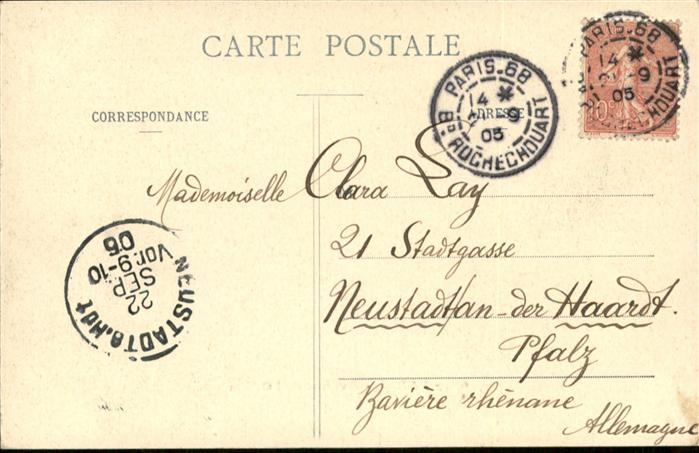 CARTE POSTALE
CORRESPONDANCE
ADRESSE
PARIS.68
14 *
9
05
Bd ROCHECHOUART
PARIS.68
14 *
9
05
ROCHECHOUART
10c
Mademoiselle Clara Lay
21 Stadtgasse
Neustadt/an-der Haardt.
Pfalz
Bavière rhénane
Allemagne
NEUSTADT a.Hdt
22
SEP
Vor. 9-10
05